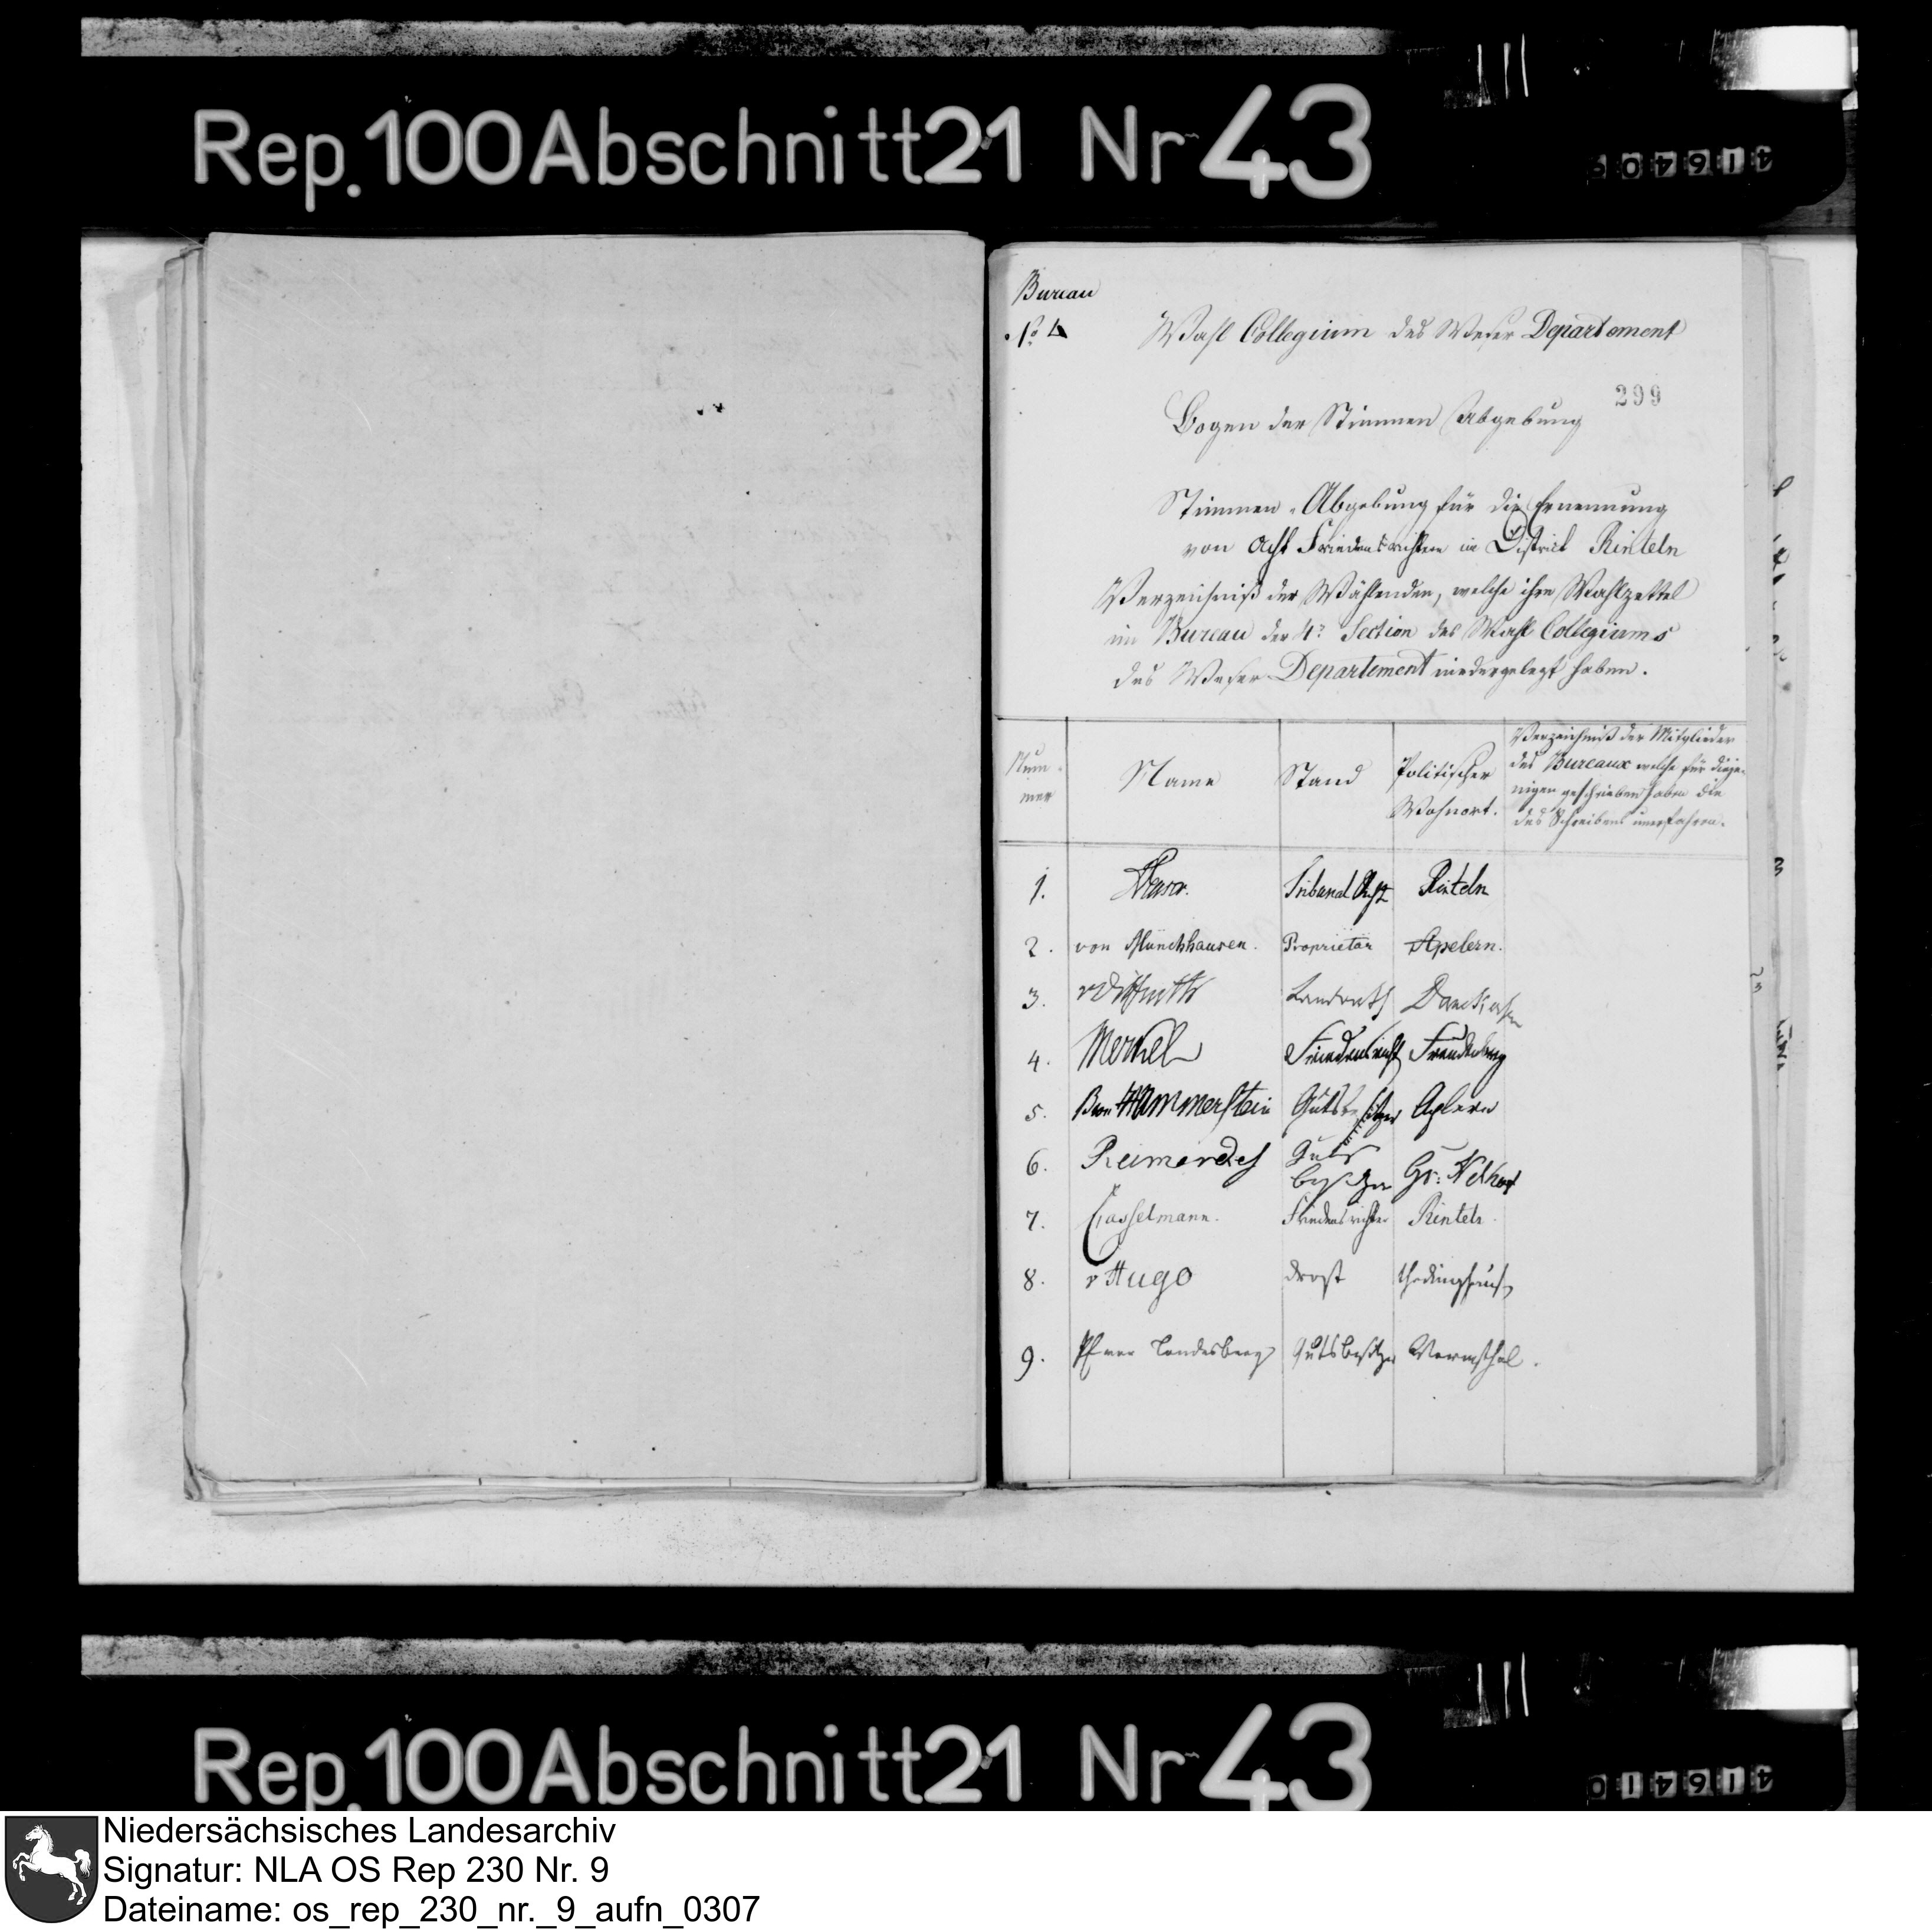 Rep. 100 Abschnitt 21 Nr 43
Bureau
No. 4
Wahl Collegium des Weser Departement
299
Bogen der Stimmen Abgebung
Stimmen-Abgebung für die Ernennung
von acht Friedensrichtern im District Rinteln
Verzeichniß der Wählenden, welche ihre Wahlzettel
im Bureau der 4t. Section des Wahl Collegiums
des Weser Departement niedergelegt haben.
Num-
mer
Name
Stand
Politischer
Wohnort.
Verzeichniß der Mitglieder
des Bureaux welche für dieje-
nigen geschrieben haben die
des Schreibens unerfahren.
1. Tribunal Rinteln
2. von Münchhausen. Proprietär Apelern.
3. Landrath
4. Merkel Friedensricht Freudenberg
5. Hammerstein Gutsbesitzer Aplern
6. Reimerdes Guts
besitzer Gr:
7. Casselmann. Friedensrichter Rinteln
8. v Hugo drost
9. von Landesberg Gutsbesitzer Wormsthal.
Rep. 100 Abschnitt 21 Nr 43
Niedersächsisches Landesarchiv
Signatur: NLA OS Rep 230 Nr. 9
Dateiname: os_rep_230_nr._9_aufn_0307